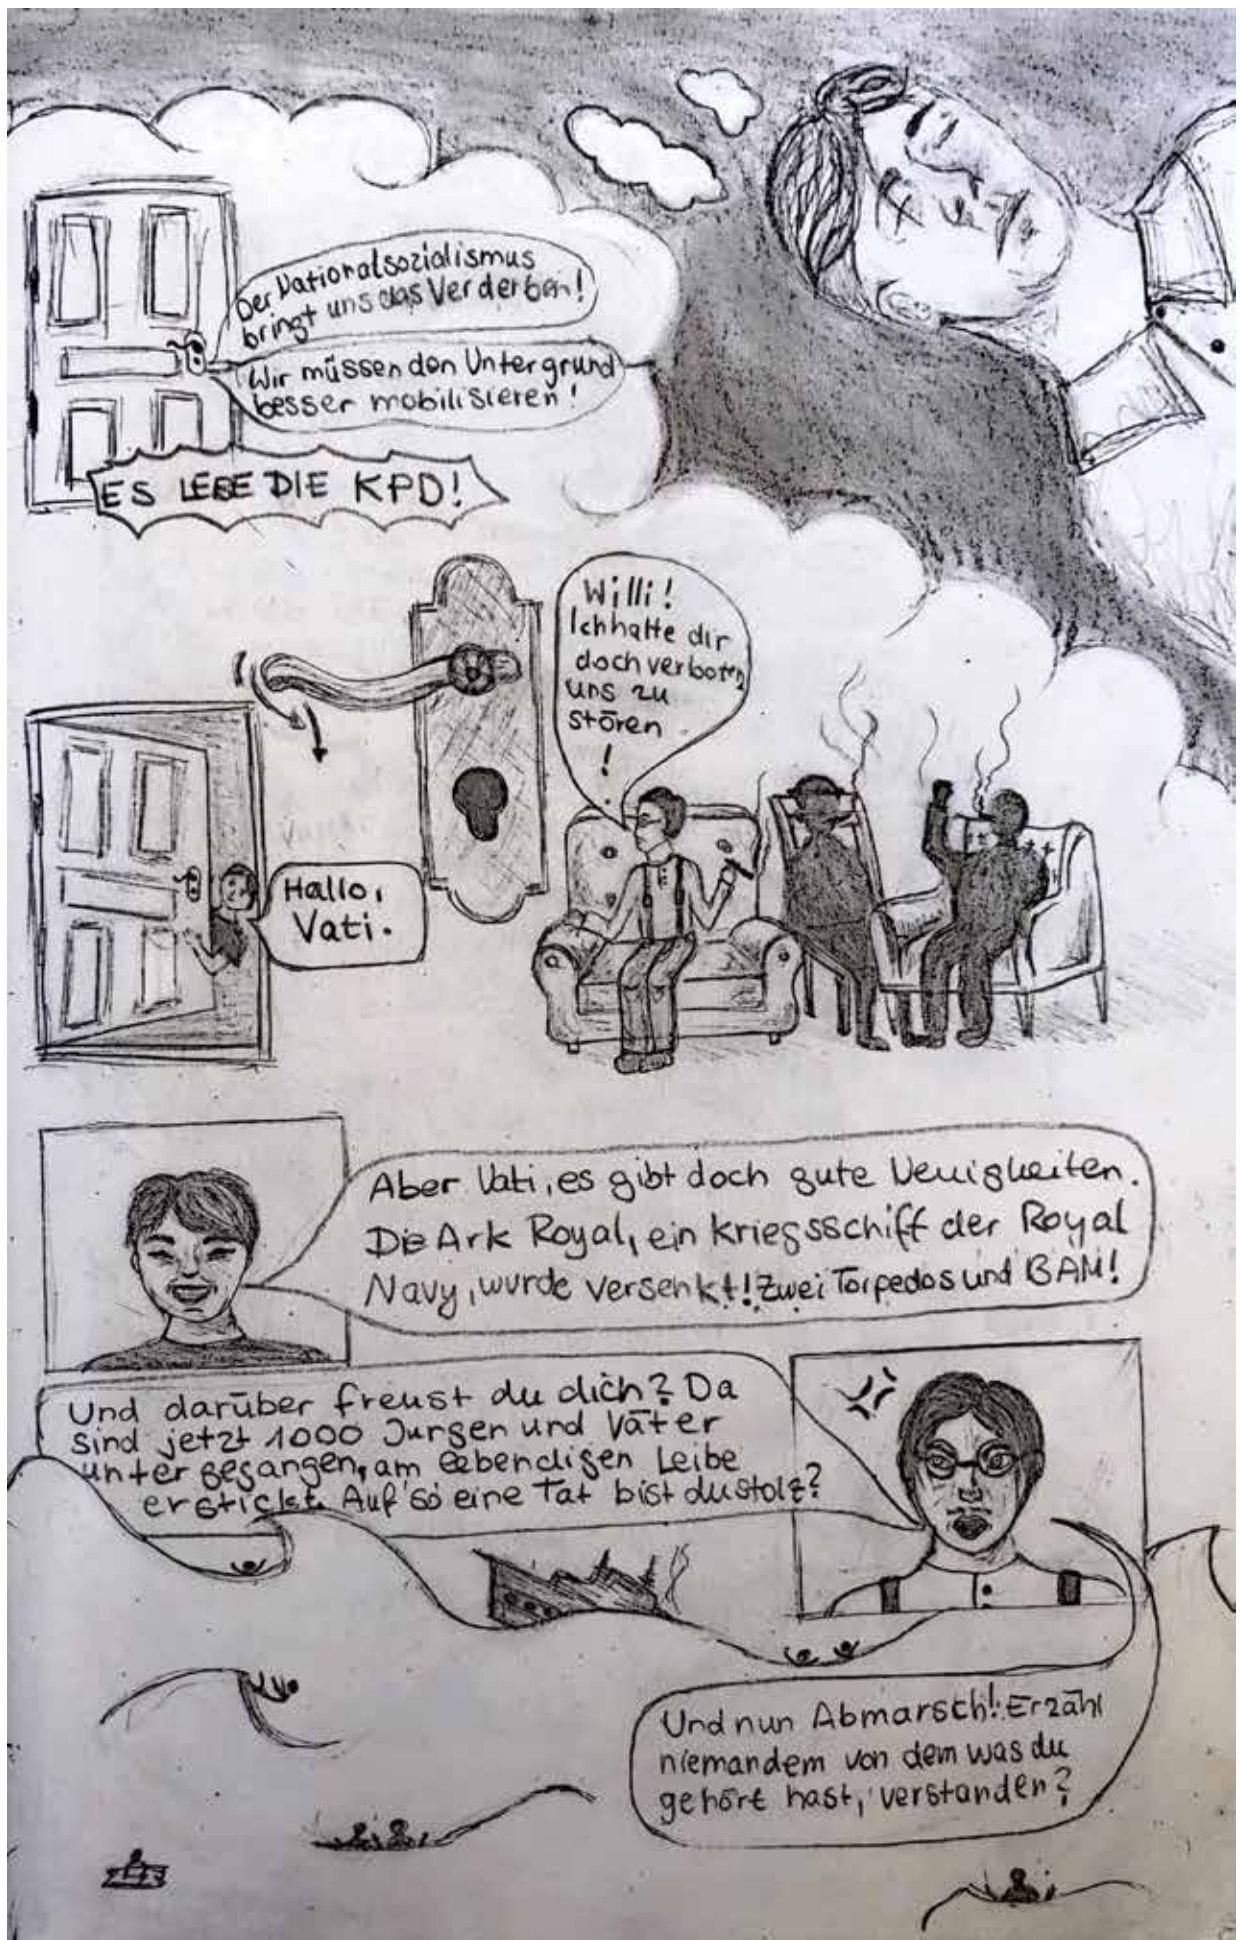 Der Nationalsozialismus
bringt uns das Verderben!
Wir müssen den Untergrund
besser mobilisieren!
ES LEBE DIE KPD!
Willi!
Ich hatte dir
doch verboten
uns zu
stören
!
Hallo,
Vati.
Aber Vati, es gibt doch gute Neuigkeiten.
Die Ark Royal, ein Kriegsschiff der Royal
Navy, wurde versenkt! Zwei Torpedos und BAM!
Und darüber freust du dich? Da
sind jetzt 1000 Jungen und Väter
untergegangen, am lebendigen Leibe
erstickt. Auf so eine Tat bist du stolz?
Und nun Abmarsch! Erzähl
niemandem von dem was du
gehört hast, verstanden?